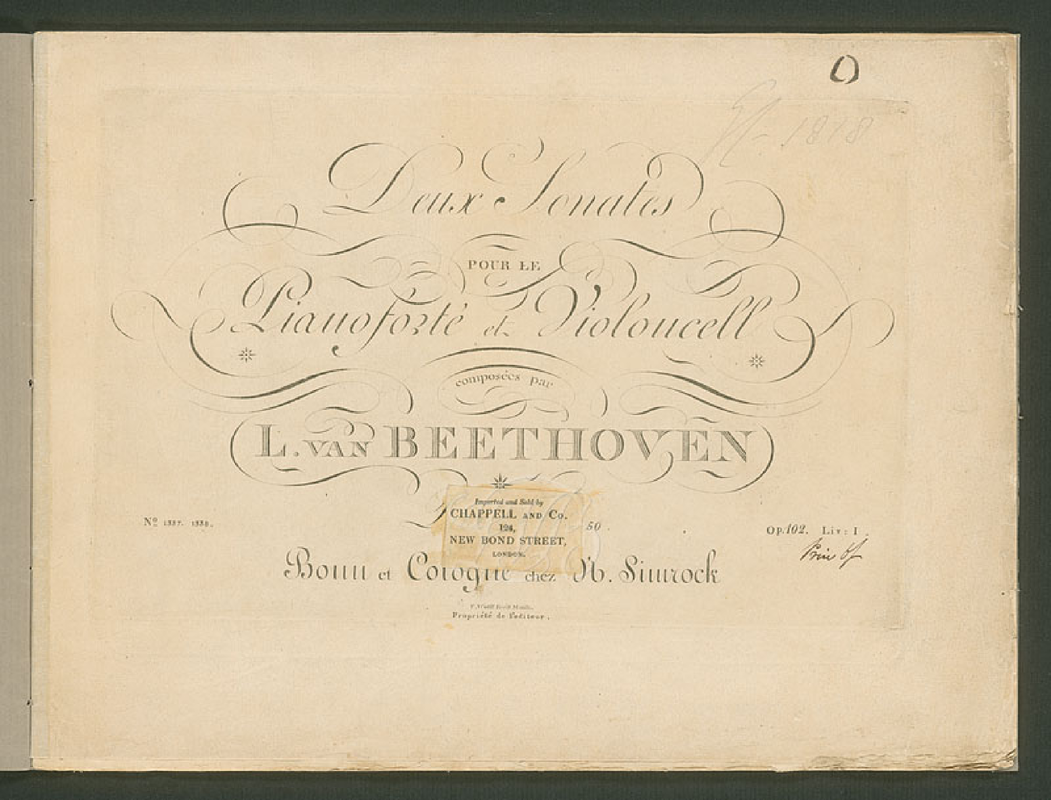 O
1818
Deux Sonates
POUR LE
Pianoforté et Violoncell
composées par
L. VAN BEETHOVEN
Imported and Sold by
CHAPPELL AND Co.
124,
NEW BOND STREET,
LONDON.
50.
Nº 1337. 1338.
Op. 102. Liv: I.
Bonn et Cologne chez N. Simrock
Propriété de l'editeur.